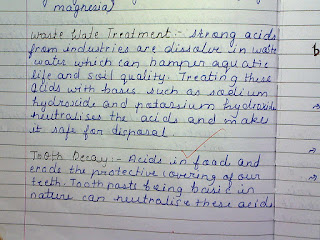 magnesia)
Waste Water Treatment:- Strong acids
from industries are dissolve in waste
water which can hamper aquatic
life and soil quality. Treating these
acids with bases such as sodium
hydroxide and potassium hydroxide
neutralises the acids and make
it safe for disposal.
Tooth Decay:- Acids in food and
erode the protective covering of our
teeth. Toothpaste being basic in
nature can neutralise these acids